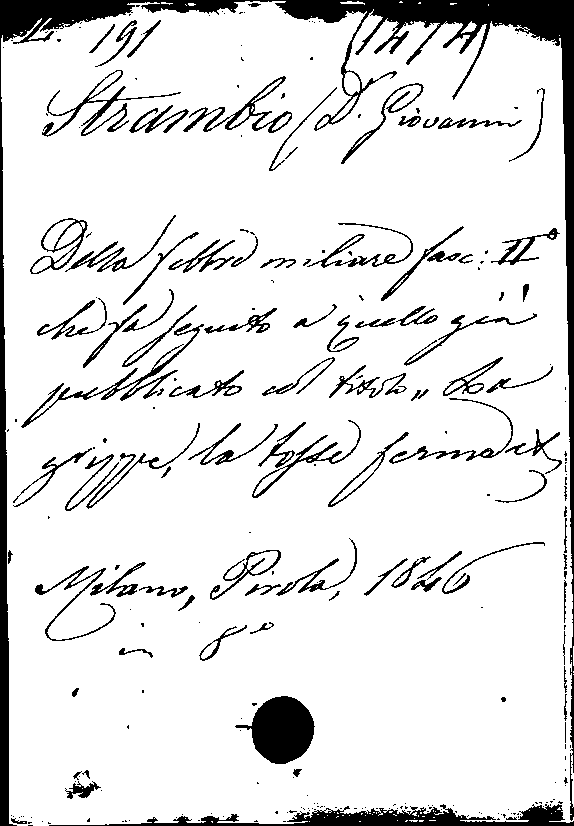 L. 191 (1474)
Strambio (Dr. Giovanni)
Della febbre miliare fasc: II°
che fa seguito a quello già
pubblicato col titolo „ La
grippe, la tosse ferina etc
Milano, Pirola, 1846
in 8°